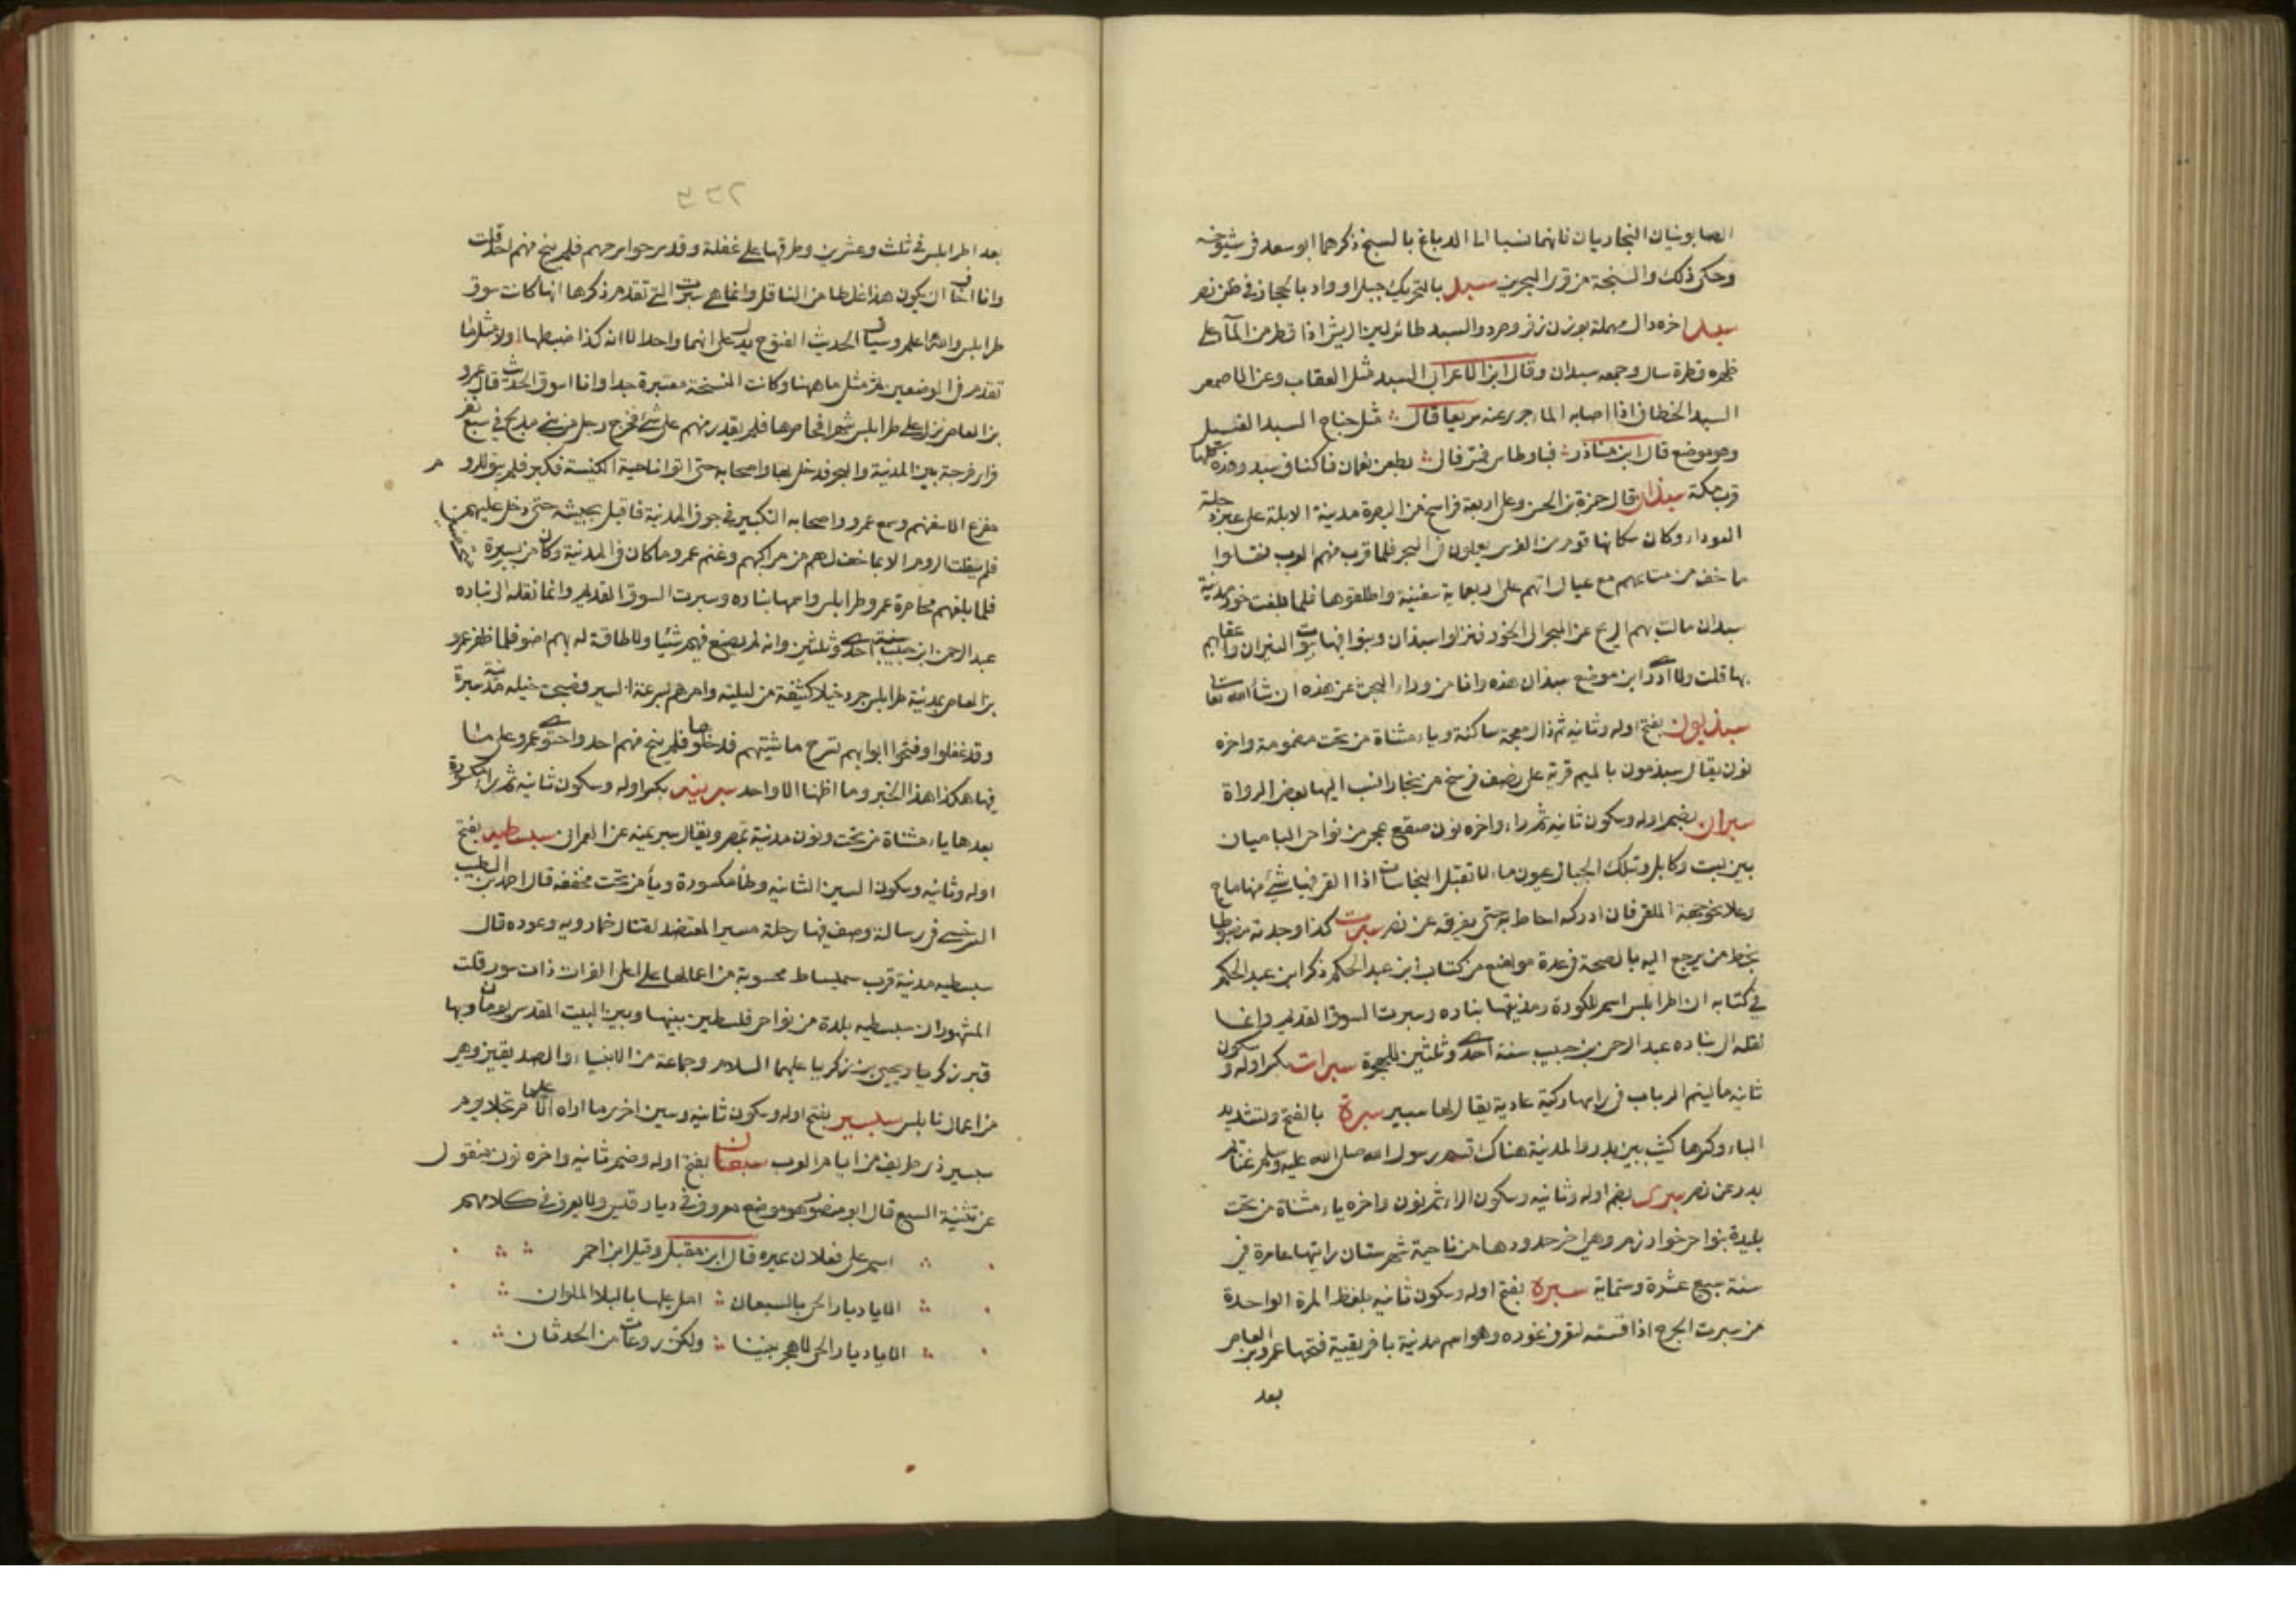 الصابونيان النجاديان فانهما نسبا الى الدباغ بالسبخ ذكرهما ابو سعد في شيوخه
وحكى ذلك والسبخة من قرى البحرين سبد بالتحريك جبل او واد بالحجاز في ظن نصر
سبد اخره دال مهملة بوزن زفر وصرد والسبد طائر لين الريش اذا قطر من المآ على
ظهره قطرة سال وجمعه سبدان وقال ابن الاعرابي السبد مثل العقاب وعن الاصمعي
السبد الخطاف اذا اصابه الما جرى عنه سريعا قال مثل جناح السبد الغسيل
وهو موضع قال ابن مناذر فباوطاس فمر فال بطن نعمان فاكناف سبد وهذه كلها
قرب مكة سبذان قال حمزة بن الحسن وعلى اربعة فراسخ من البصرة مدينة الابلة على عبر دجلة
العوراء وكان سكانها قوم من الفرس يعملون في البحر فلما قرب منهم العرب نقلوا
ما خف من متاعهم مع عيالاتهم على اربعماية سفينة واطلقوها فلما بلغت خور مدينة
سبذان مالت بهم الريح عن البحر الى الخور فنزلوا سبذان وبنوا فيها بيوت النيران واعقابهم
بها قلت ولا ادري اين موضع سبذان هذه وانا من وراء البحث عن هذه ان شا الله تعالى
سبذيون بفتح اوله وثانيه ثم ذال معجمة ساكنة وياء مثناة من تحت مضمومة واخره
نون يقال سبذمون بالميم قرية على نصف فرسخ من بخارا نسب اليها بعض الرواة
سبران بضم اوله وسكون ثانيه ثم راء واخره نون صقع عجمي من نواحي الباميان
بين بست وكابل وبتلك الجبال عيون ماء لا تقبل النجاسات اذا القي فيها شئ منها ماج
وغلا نحو جهة الملقي فان ادركه احاط به حتى يغرقه عن نصر سبرت كذا وجدته مضبوطا
بخط من يرجع اليه بالصحة في عدة مواضع من كتاب ابن عبد الحكم ذكر ابن عبد الحكم
في كتابه ان اطرابلس اسم للكورة ومدينتها نباده وسبرت السوق القديم وانما
نقله الى نباده عبد الرحمن بن حبيب سنة احدى وثلثين للهجرة سبرات بكسر اوله وسكون
ثانيه ما لتيم الرباب في راسها ركية عادية يقال لها سبير سبرة بالفتح وتشديد
الباء وكسرها كثيب بين بدر والمدينة هناك قسم رسول الله صلى الله عليه وسلم غنائم
بدر عن نصر سبرى بضم اوله وثانيه وسكون الراء ثم نون واخره ياء مثناة من تحت
بليدة بنواحي خوارزم وهي اخر حدودها من ناحية شهرستان رايتها عامرة في
سنة سبع عشرة وستماية سبرة بفتح اوله وسكون ثانيه بلفظ المرة الواحدة
من سبرت الجرح اذا قسته لتعرف غوره وهو اسم مدينة بافريقية فتحها عمرو بن العاص
بعد
بعد اطرابلس في ثلث وعشرين وطرقها على غفلة وقد سرحوا سرحهم فلم ينج منهم احد قلت
وانا اخاف ان يكون هذا غلطا من الناقل وانما هي سبرت التي تقدم ذكرها انها كانت سوق
طرابلس والله اعلم وسياق الحديث الفتوح يدل على انهما واحد الا انه كذا ضبطها اولا مثل ما
تقدم في الموضعين ثم مثل ما ههنا وكانت النسخة معتبرة جدا وانا اسوق الحديث قال عمرو
بن العاص نزل على طرابلس شهرا فحاصرها فلم يقدر منهم على شئ فخرج رجل من بني مدلج في سبع نفر
فراى فرجة بين المدينة والبحر فدخل بها واصحابه حتى اتوا ناحية الكنيسة فكبر فلم يبق للرو م
مفزع الا سفنهم وسمع عمرو واصحابه التكبير في جوف المدينة فاقبل بجيشه حتى دخل عليهم
فلم يفلت الروم الا بما خف لهم من مراكبهم وغنم عمرو ما كان في المدينة وكان من بسبرة
فلما بلغهم محاصرة عمرو طرابلس واسمها نباده وسبرت السوق القديم وانما نقله الى نباده
عبد الرحمن ابن حبيب سنة احدى وثلثين وانه لم يصنع فيهم شيئا ولا طاقة له بهم امنوا فلما ظفر عمرو
بن العاص بمدينة طرابلس جرد خيلا كثيفة من ليلته وامرهم بسرعة السير فصبحت خيله مدينة سبرة
وقد غفلوا وفتحوا ابوابهم لتسرح ماشيتهم فدخلوها فلم ينج منهم احد واحتوى عمرو على ما
فيها هكذا هذا الخبر وما اظنها الا واحد سبرينه بكسر اوله وسكون ثانيه ثم راء مكسورة
بعدها ياء مثناة من تحت ونون مدينة بمصر ويقال سبرمينه عن العمراني سبسطيه بفتح
اوله وثانيه وسكون السين الثانيه وطا مكسورة ويا من تحت مخففه قال احمد بن الطيب
السرخسي في رسالة وصف فيها رحلة مسير المعتضد لقتال خمارويه وعوده قال
سبسطيه مدينة قرب سميساط محسوبة من اعمالها على اعلى الفرات ذات سور قلت
المشهور ان سبسطيه بلدة من نواحي فلسطين بينها وبين البيت المقدس يومان وبها
قبر زكريا ويحيى بن زكريا عليهما السلام وجماعة من الانبياء والصديقين وهي
من اعمال نابلس سبسير بفتح اوله وسكون ثانيه وسين اخرى ما اراه الا علما مرتجلا يوم
سبسير ذي طريف من ايام العرب سبعان بفتح اوله وضم ثانيه واخره نون منقول
عن تثنية السبع قال ابو منصور هو موضع معروف في ديار قيس ولا يعرف في كلامهم
اسم على فعلان غيره قال ابن مقبل وقيل ابن احمر
الا يا ديار الحي بالسبعان امل عليها بالبلا الملوان
الا يا ديار الحي لا هجر بيننا ولكن روعات من الحدثان